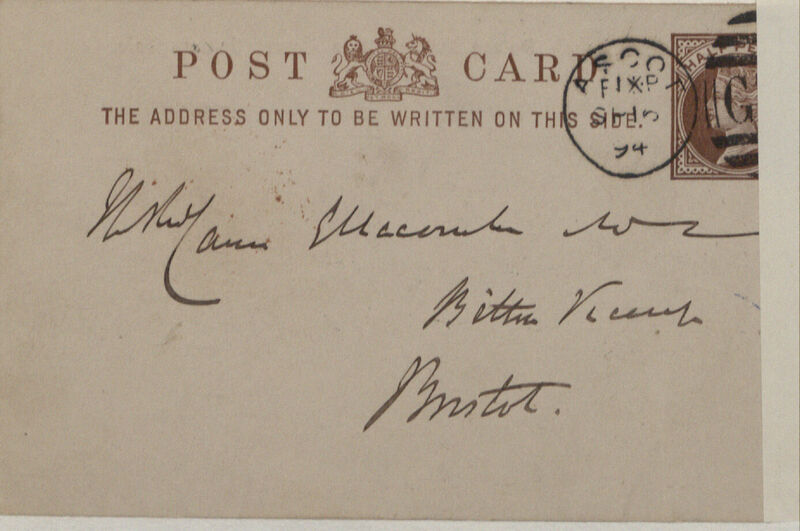 POST CARD
THE ADDRESS ONLY TO BE WRITTEN ON THIS SIDE.
HALF PE
ASCOT
94
G
Canon Ellacombe
Bitton Vicarage
Bristol.